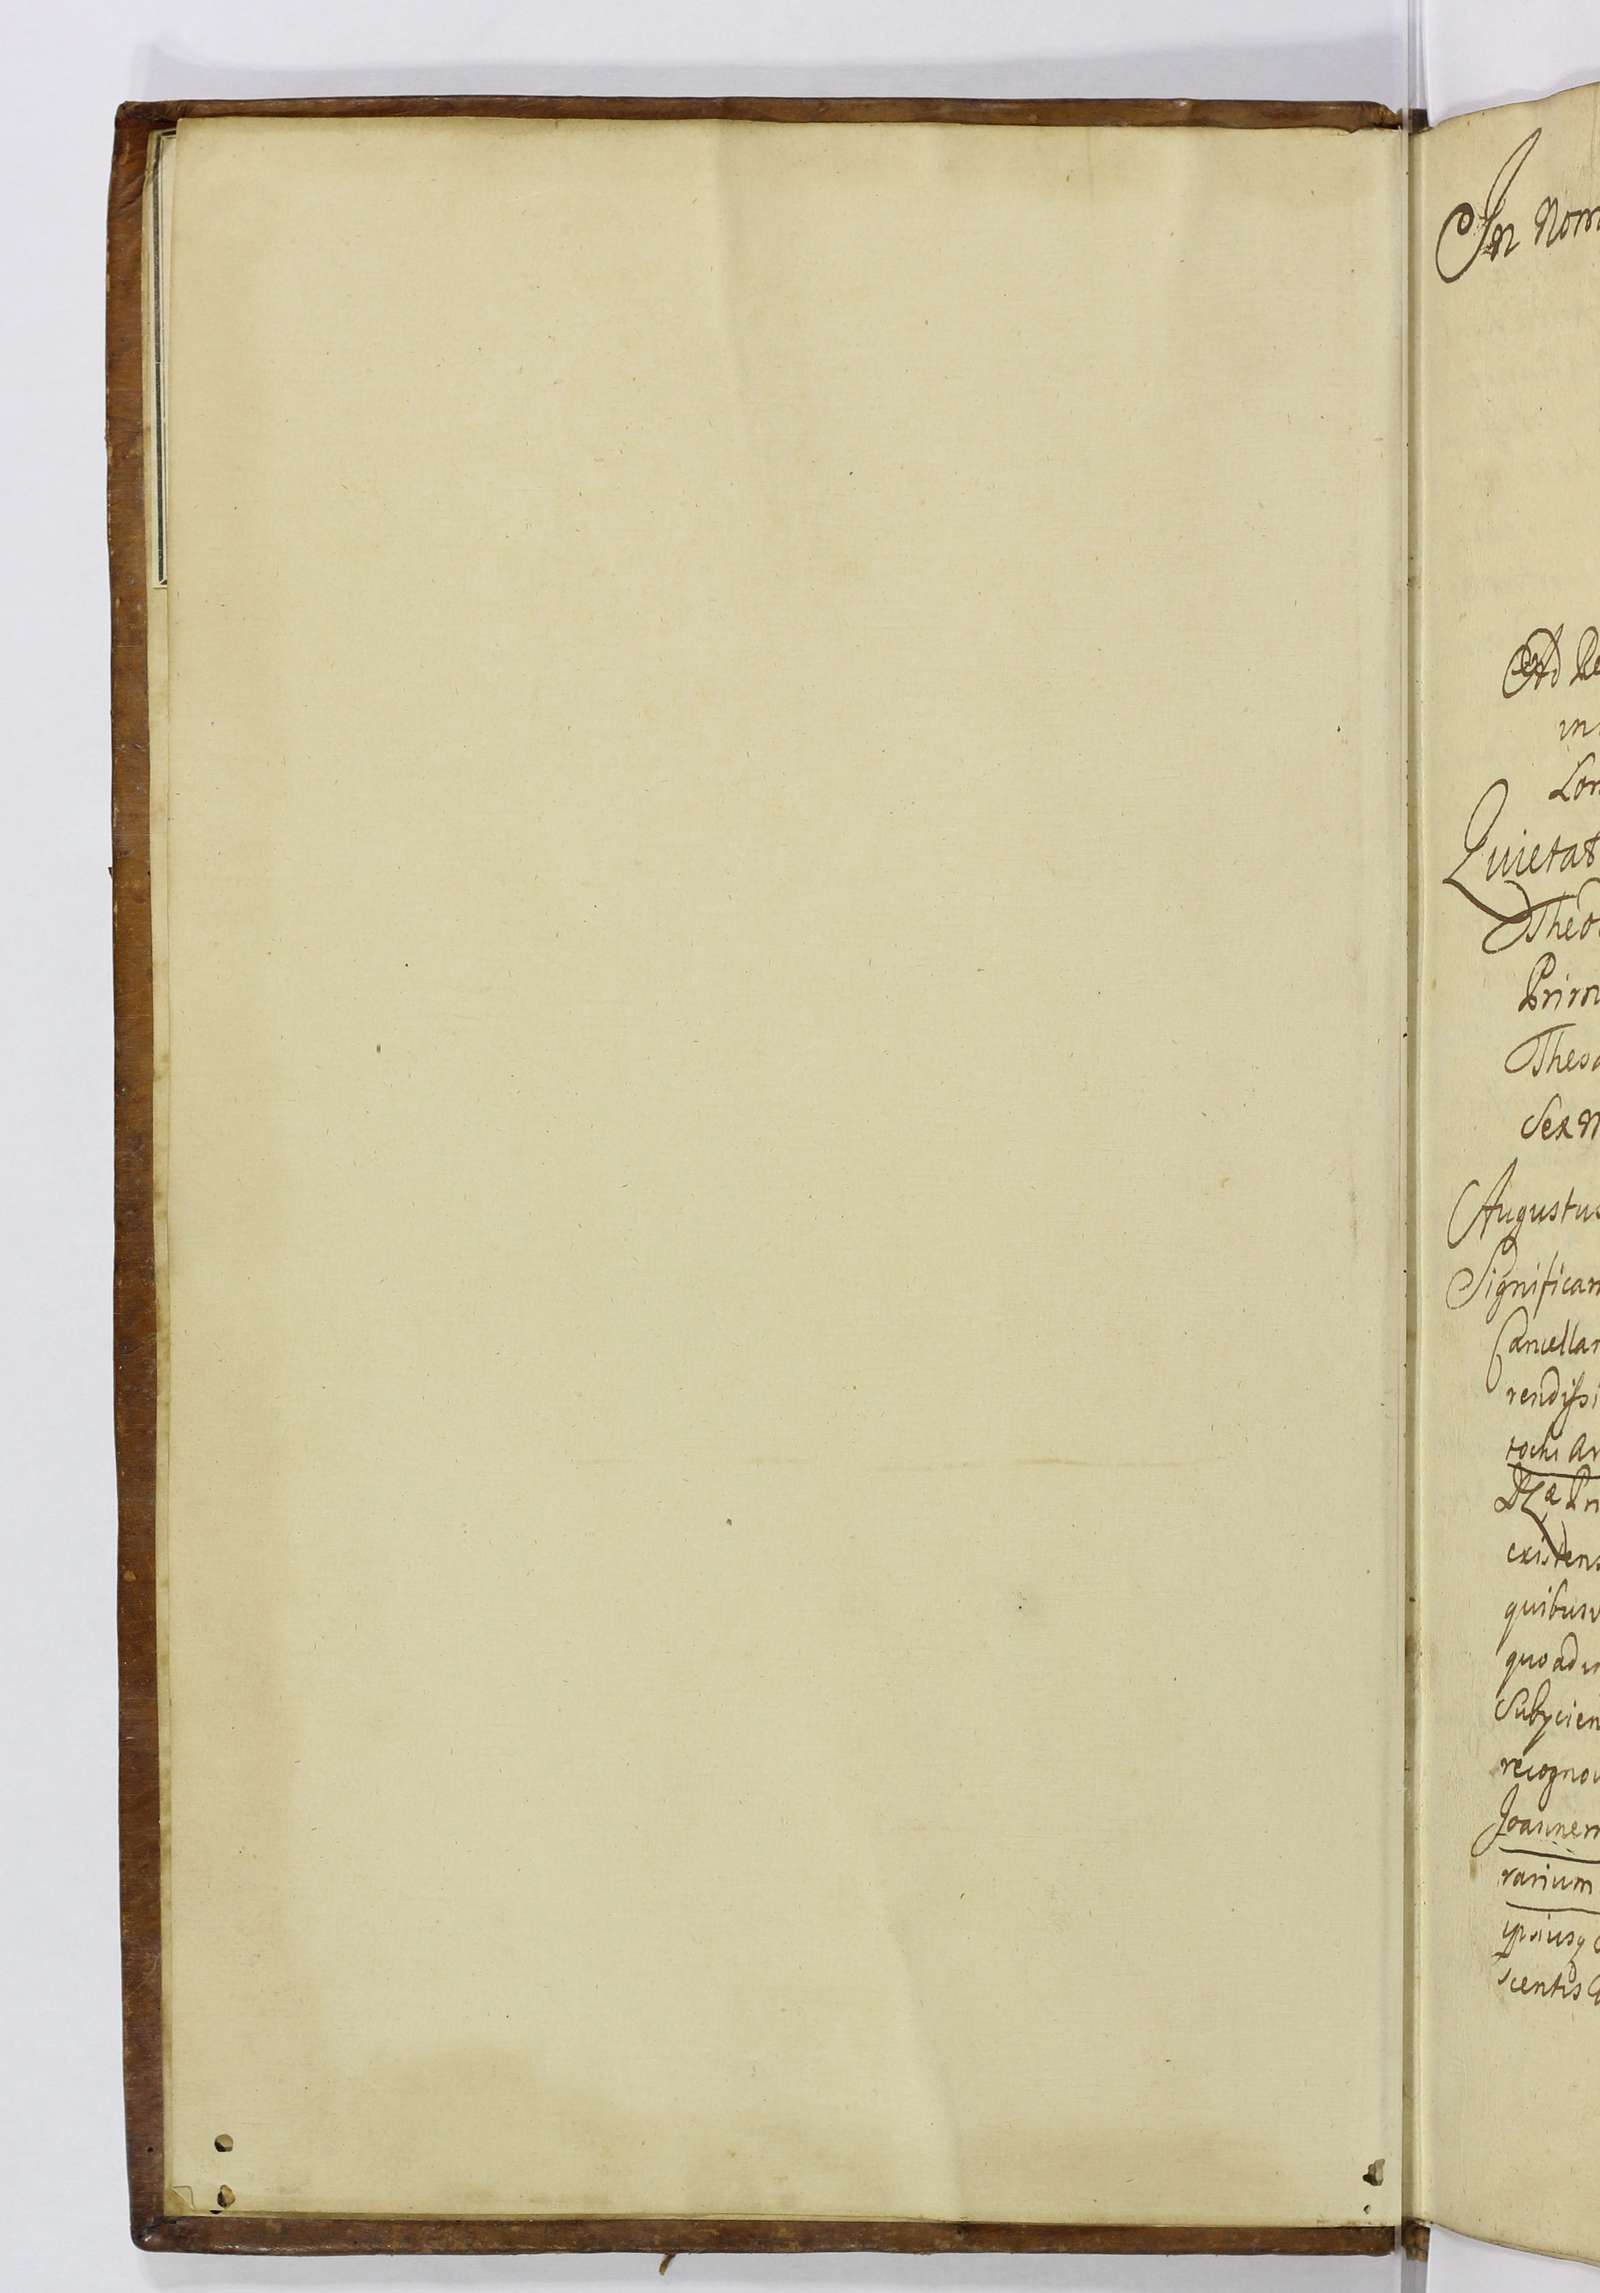 In Nom
Ad Re
in
Lon
Quietat
Theo
Prim
Theo
Augustus
Significam
Cancellar
rendissi
tochi Ar
existens
quibusv
quoadu
Subjicien
recognov
Joannem
rarium
ipsiusq
scentis